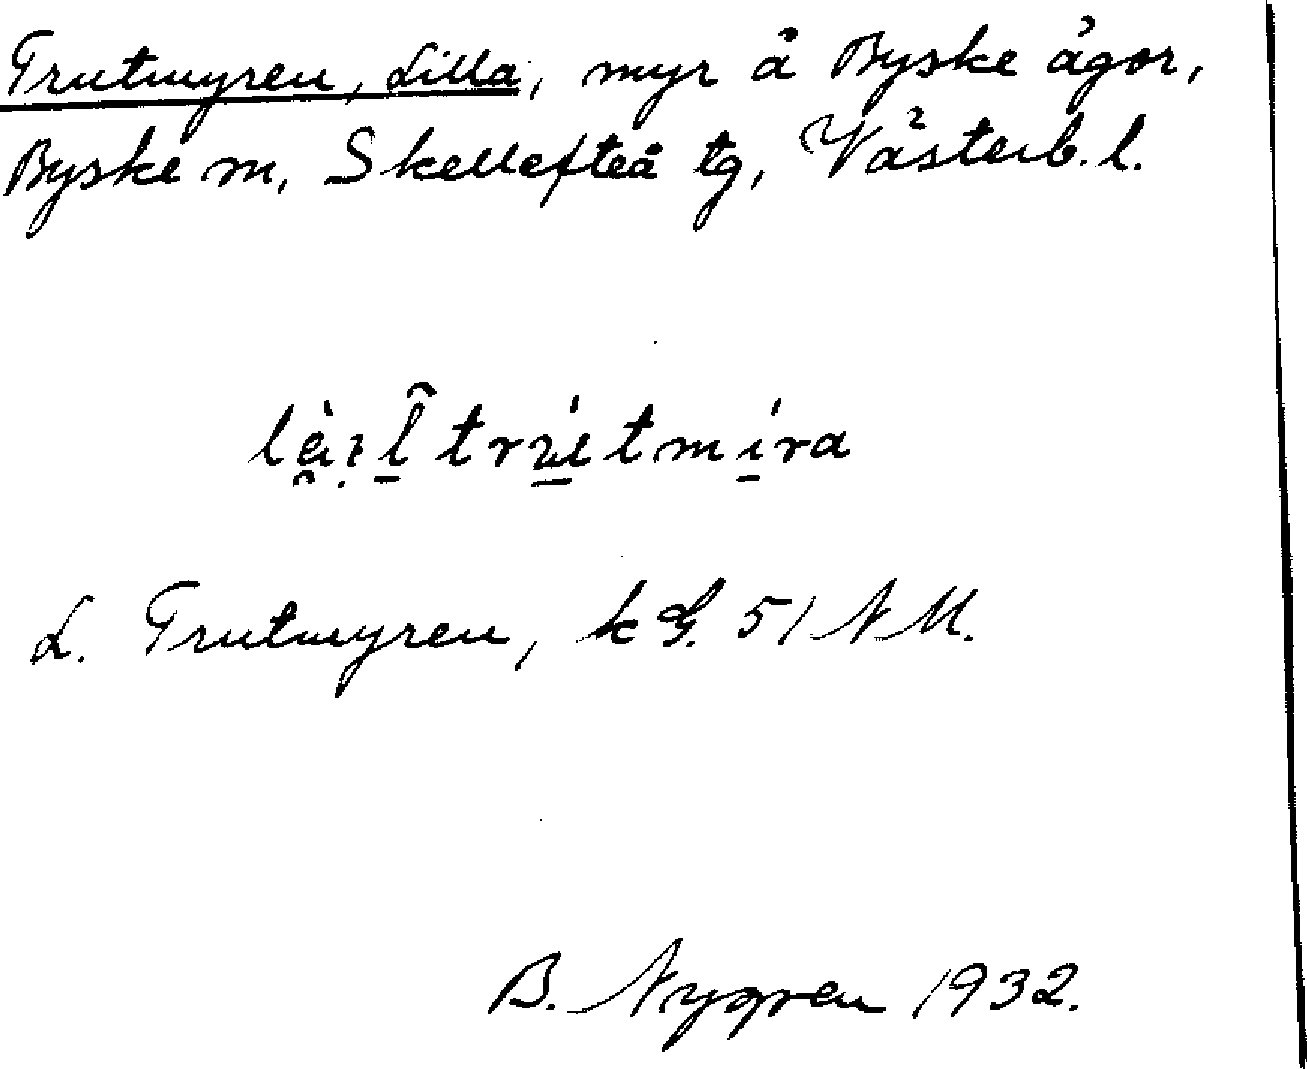 Trutmyren, Lilla, myr å Byske ägor,
Byske m, Skellefteå tg, Västerb. l.
L. Trutmyren, k G. 51 N M.
B. Nygren 1932.